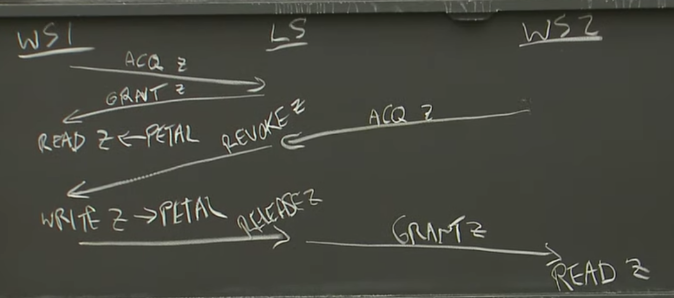 WS1 LS WS2
ACQ Z
GRANT Z
READ Z ← PETAL
REVOKE Z
ACQ Z
WRITE Z → PETAL
RELEASE Z
GRANT Z
READ Z